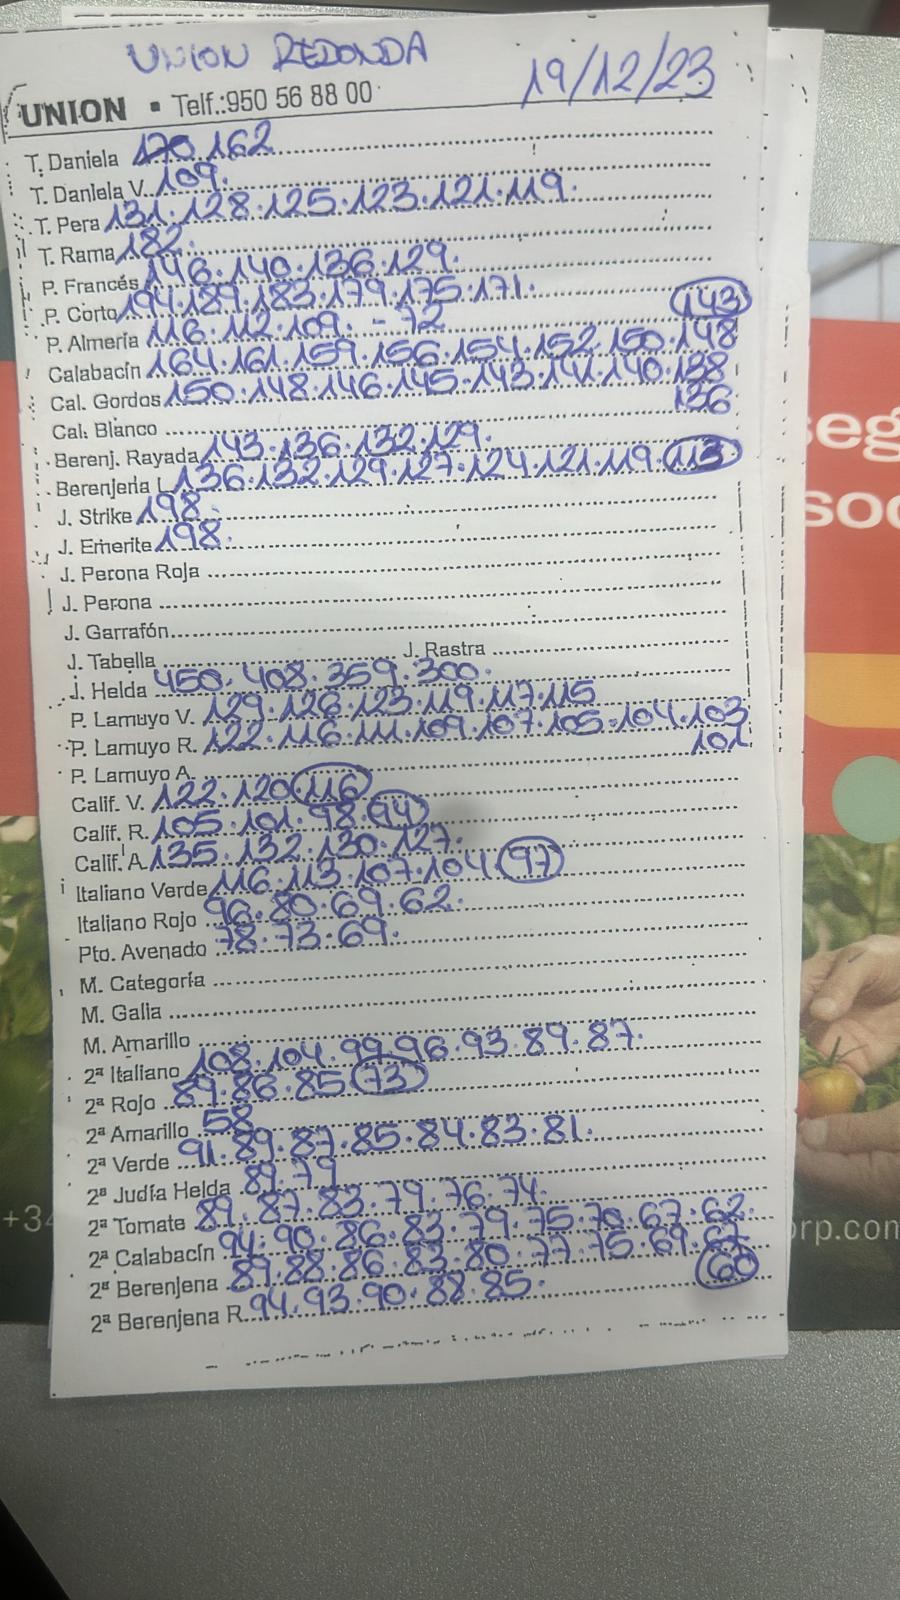 UNION REDONDA
19/12/23
UNION ▪ Telf.:950 56 88 00
T. Daniela 170.162
T. Daniela V. 109.
T. Pera 131.128.125.123.121.119.
T. Rama 182.
P. Francés 146.140.136.129.
P. Corto 194.189.183.179.175.171. 143
P. Almería 116.112.109. - 72
Calabacín 164.161.159.156.154.152.150.148
Cal. Gordos 150.148.146.145.143.141.140.138
136
Cal. Blanco
Berenj. Rayada 143.136.132.129.
Berenjena L. 136.132.129.127.124.121.119.113
J. Strike 198.
J. Emerite 198.
J. Perona Roja
J. Perona
J. Garrafón
J. Tabella J. Rastra
J. Helda 450.408.359.300.
P. Lamuyo V. 129.126.123.119.117.115
P. Lamuyo R. 122.116.111.109.107.105.104.103
101
P. Lamuyo A.
Calif. V. 122.120.116
Calif. R. 105.101.98.94
Calif. A. 135.132.130.127.
Italiano Verde 116.113.107.104.97
Italiano Rojo 96.80.69.62.
Pto. Avenado 78.73.69.
M. Categoría
M. Galia
M. Amarillo
2ª Italiano 108.104.99.96.93.89.87.
2ª Rojo 89.86.85.73
2ª Amarillo 58
2ª Verde 91.89.87.85.84.83.81.
2ª Judía Helda 89.79
2ª Tomate 89.87.83.79.76.74.
2ª Calabacín 94.90.86.83.79.75.70.67.62.
2ª Berenjena 89.88.86.83.80.77.75.69.67
60
2ª Berenjena R. 94.93.90.88.85.
seg
soc
+34
orp.com